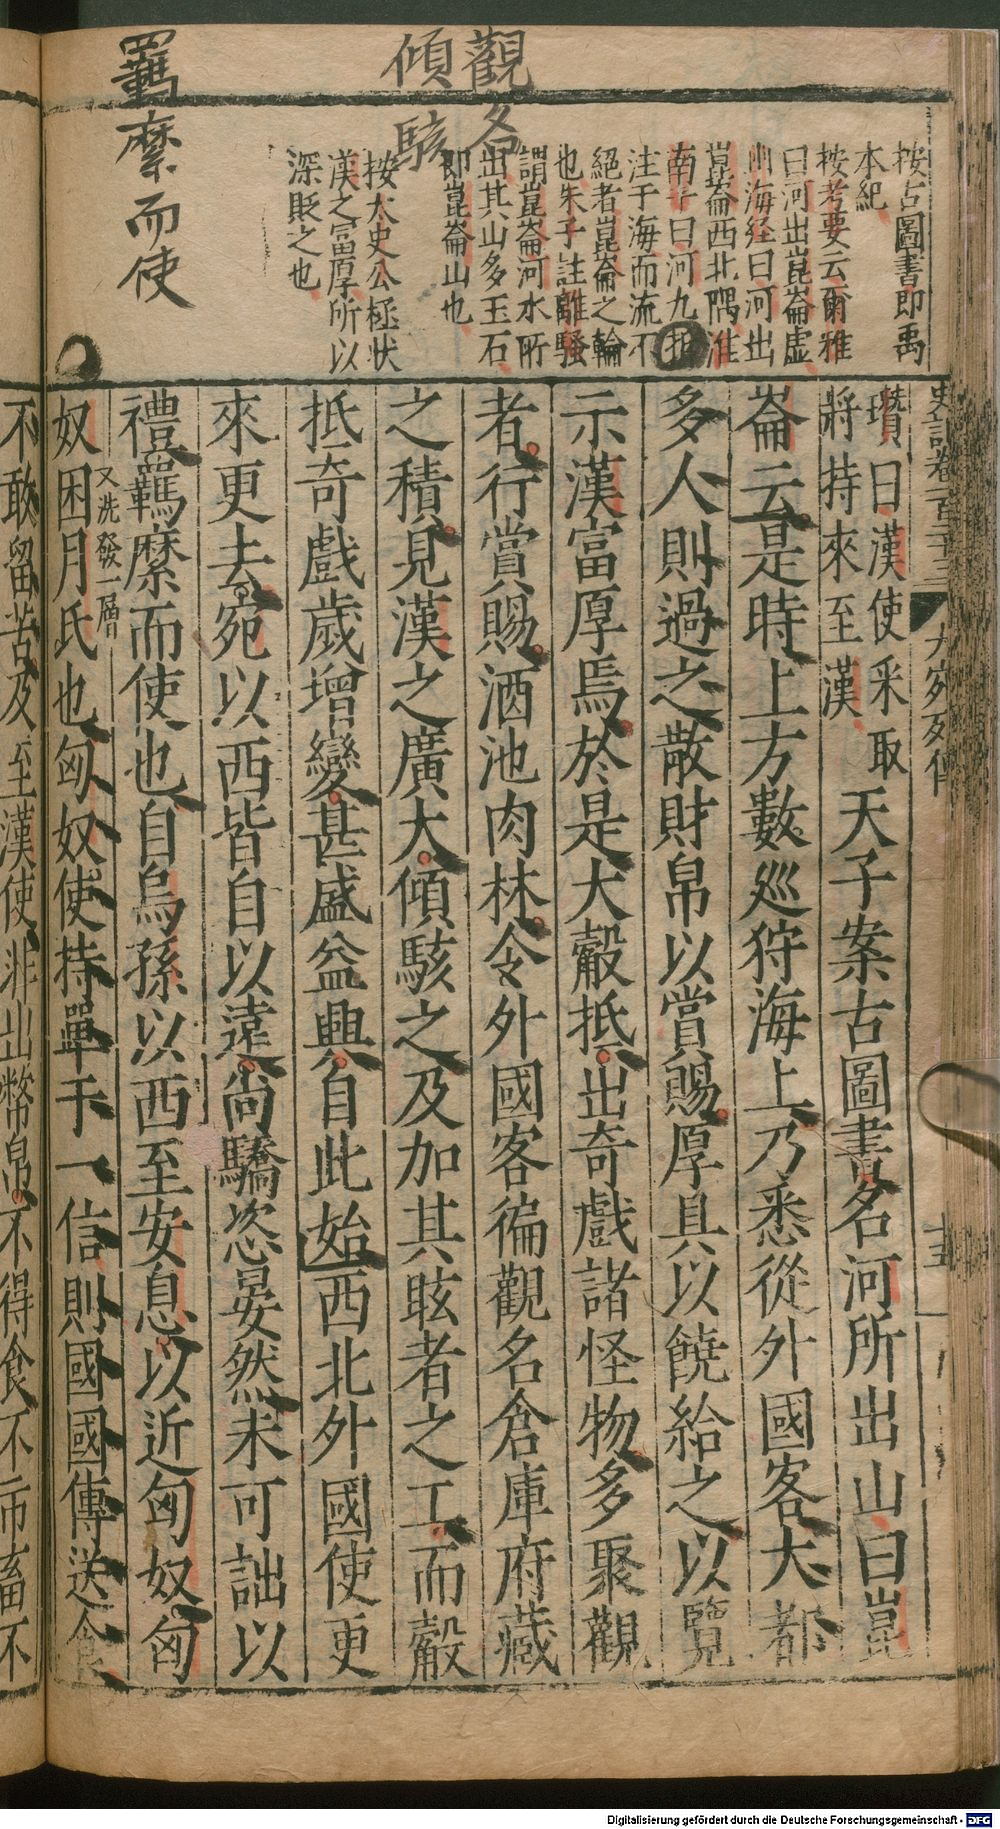 觀名
傾駭
羈縻而使
按古圖書即禹
本紀
按考要云爾雅
曰河出崑崙虛
山海經曰河出
崑崙西北隅淮
南子曰河九折
注于海而流不
絕者崑崙之輸
也朱子註離騷
謂崑崙河水所
出其山多玉石
即崑崙山也
按太史公極狀
漢之富厚所以
深貶之也
史記卷一百二十三
大宛列傳
十五
瓚曰漢使釆取
將持來至漢
天子案古圖書名河所出山曰崑
崙云是時上方數巡狩海上乃悉從外國客大都
多人則過之散財帛以賞賜厚具以饒給之以覽
示漢富厚焉於是大觳抵出奇戲諸怪物多聚觀
者行賞賜酒池肉林令外國客徧觀名倉庫府藏
之積見漢之廣大傾駭之及加其眩者之工而觳
抵奇戲歲增變甚盛益興自此始西北外國使更
來更去宛以西皆自以遠尚驕恣晏然未可詘以
禮羈縻而使也自烏孫以西至安息以近匈奴匈
又洗發一層
奴困月氏也匈奴使持單于一信則國國傳送食
不敢留苦及至漢使非出幣帛不得食不市畜不
Digitalisierung gefördert durch die Deutsche Forschungsgemeinschaft - DFG